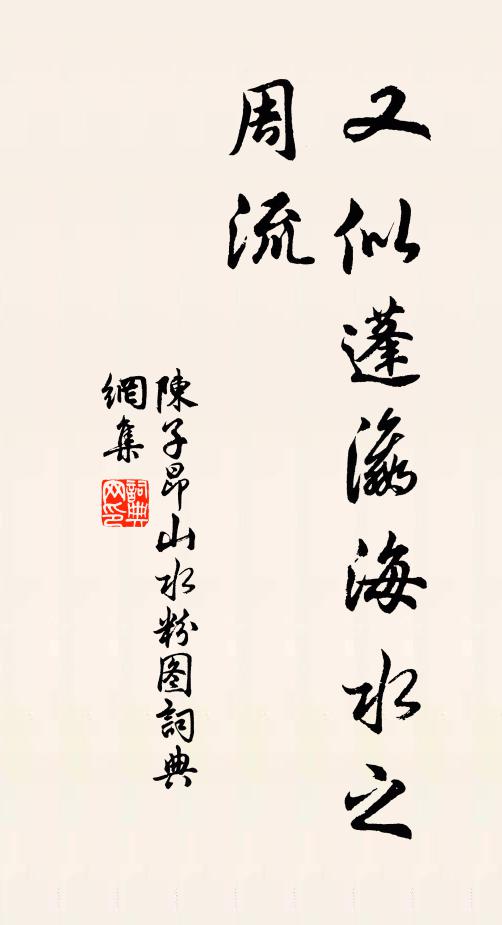 又似蓬瀛海水之
周流
陳子昂山水粉图詞典
網集
詞典
网印